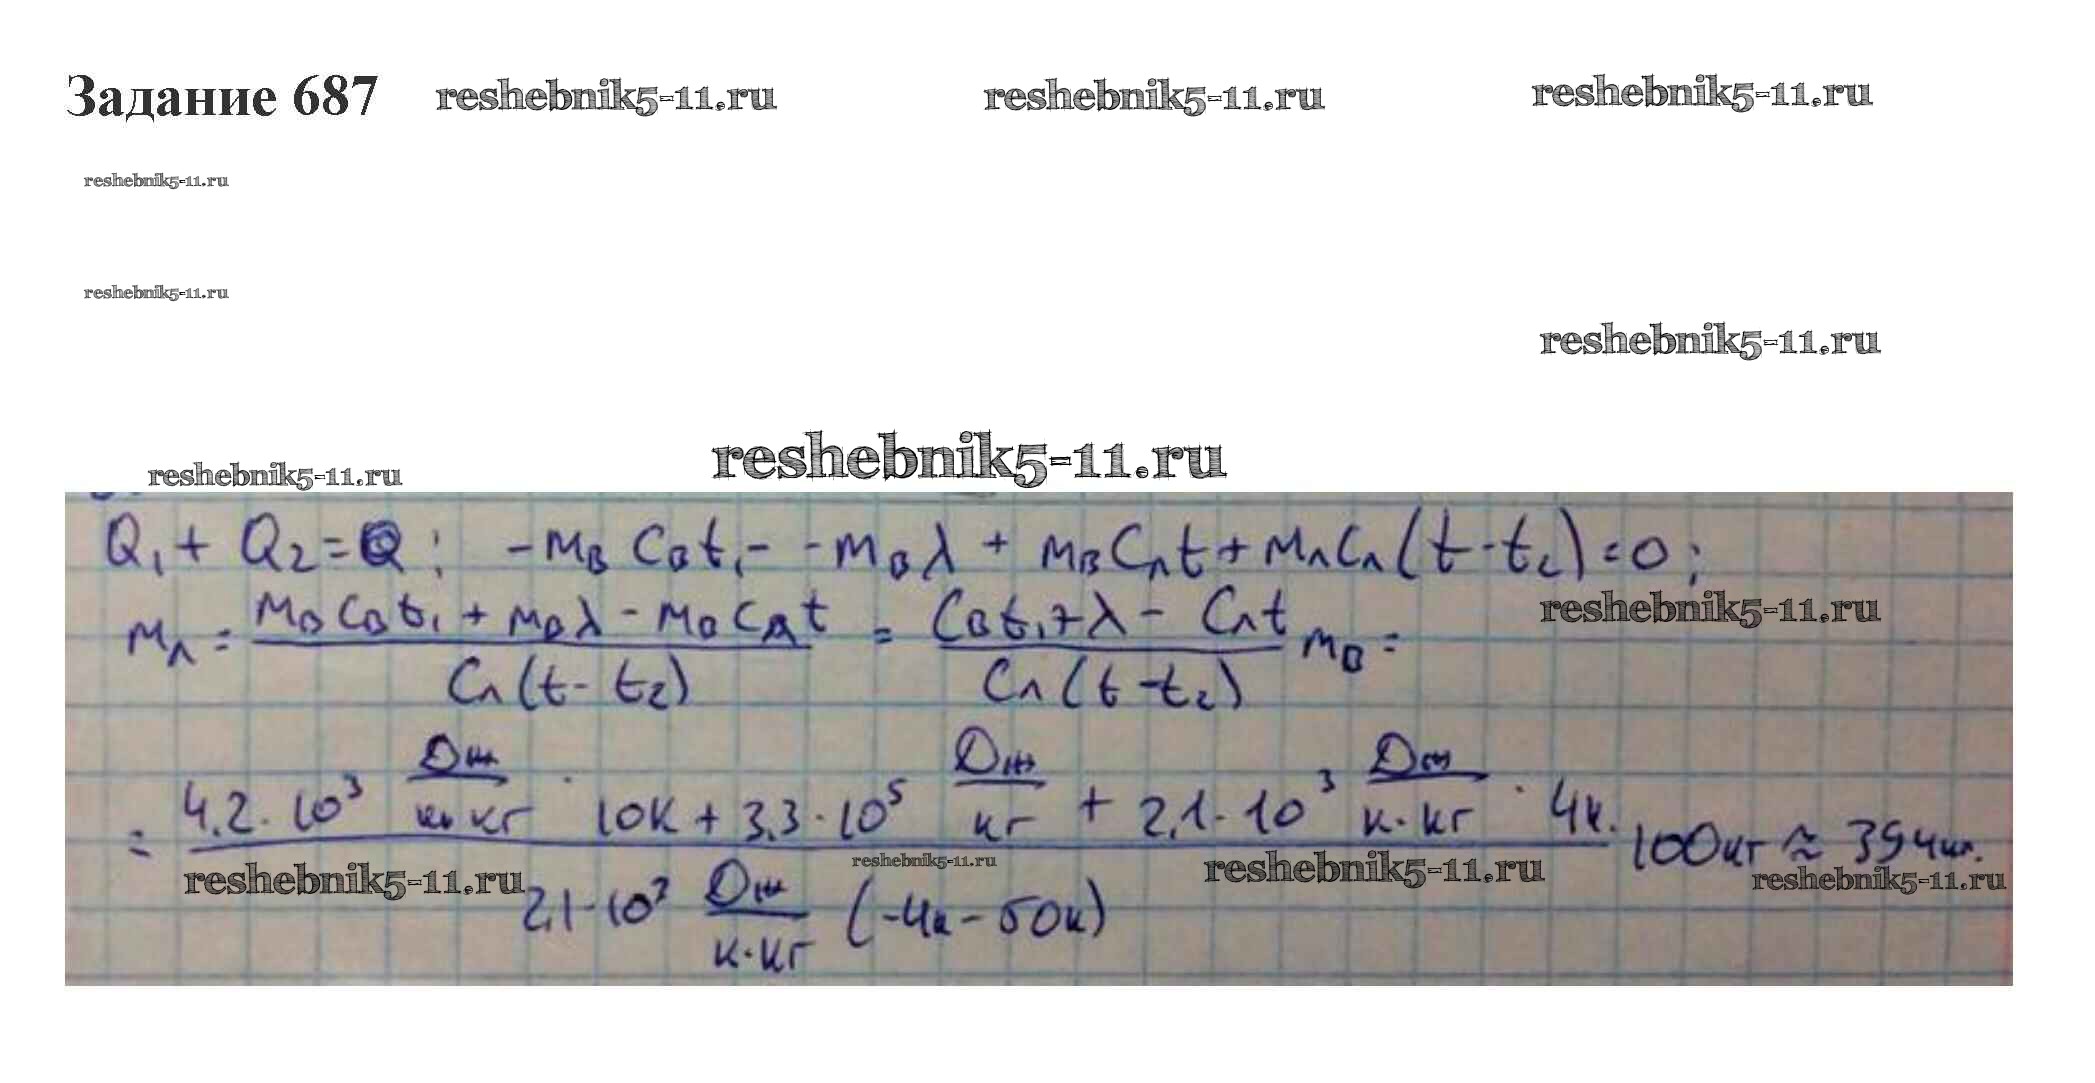 Задание 687 reshebnik5-11.ru reshebnik5-11.ru reshebnik5-11.ru
reshebnik5-11.ru
reshebnik5-11.ru
reshebnik5-11.ru
reshebnik5-11.ru reshebnik5-11.ru
Q₁ + Q₂ = Q; -mв Cв t₁ - -mв λ + mв Cл t + mл Cл (t - t₂) = 0;
reshebnik5-11.ru
mл = (mв Cв t₁ + mв λ - mв Cл t) / (Cл (t - t₂)) = (Cв t₁ + λ - Cл t) / (Cл (t - t₂)) mв =
= (4.2 · 10³ Дж/к·кг · 10К + 3,3 · 10⁵ Дж/кг + 2,1 · 10³ Дж/к·кг · 4к) / (2,1 · 10³ Дж/к·кг (-4к - 50к)) · 100кг ≈ 394кг.
reshebnik5-11.ru reshebnik5-11.ru reshebnik5-11.ru reshebnik5-11.ru